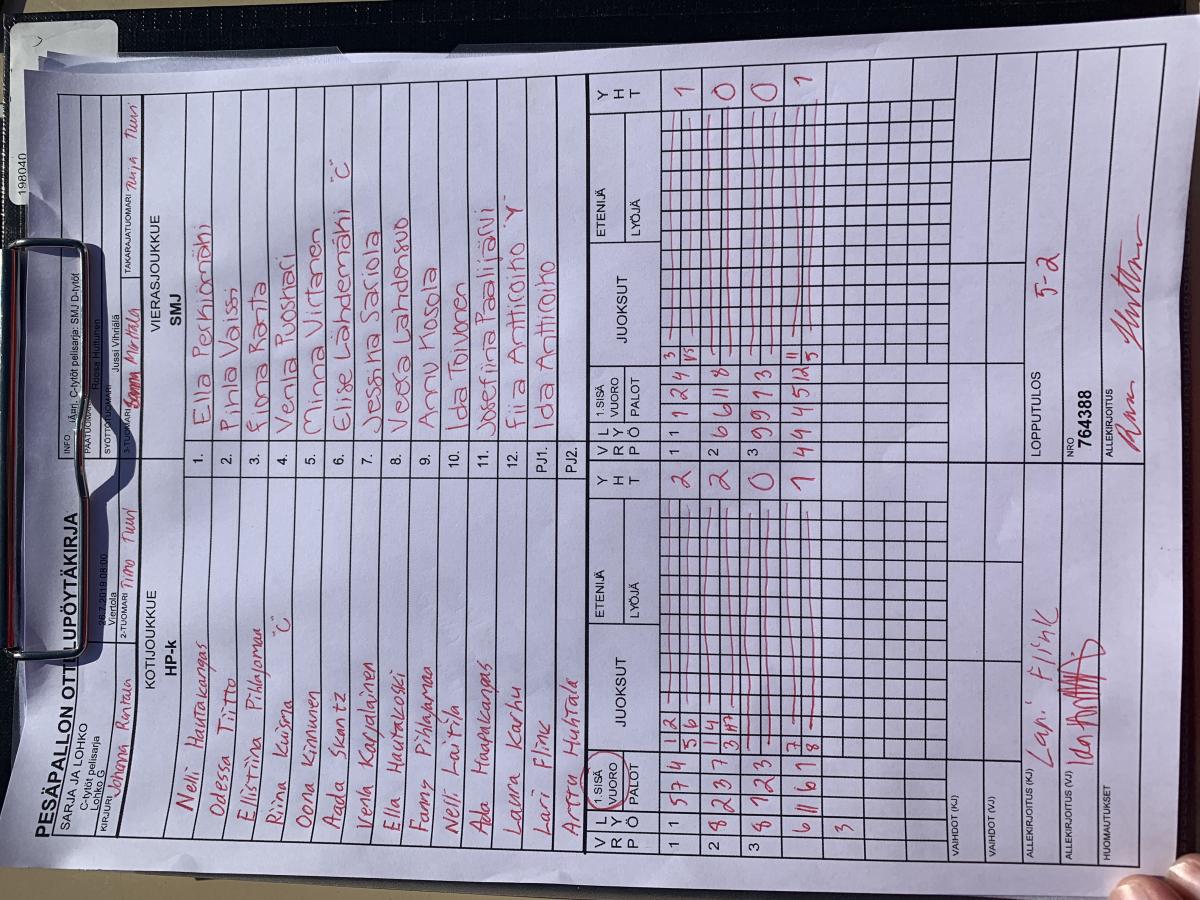 198040
PESÄPALLON OTTELUPÖYTÄKIRJA
SARJA JA LOHKO
C-tytöt pelisarja
Lohko G
INFO
C-tytöt pelisarja: SMJ D-tytöt
26.7.2019 08:00
Viertola
PÄÄTUOMARI
Roosa Huttunen
SYÖTTÖTUOMARI
Jussi Vihriälä
KIRJURI Johanna Rantala
2-TUOMARI Timo Nuri
3-TUOMARI
TAKARAJATUOMARI
KOTIJOUKKUE
HP-k
VIERASJOUKKUE
SMJ
Nelli Hautakangas 1. Ella Perkiömäki
Odessa Tiitto 2. Pihla Vaissi
Ellistiina Pihlajamaa 3. Fiona Ranta
Riina Kuisma "C" 4. Venla Puoshari
Oona Kinnunen 5. Minna Virtanen
Aada Skantz 6. Elise Lähdemäki "C"
Venla Karjalainen 7. Jessina Sariola
Ella Hautakoski 8. Veera Lahdensuo
Fanny Pihlajamaa 9. Annu Kosola
Nelli Laitila 10. Ida Toivonen
Ada Haapakangas 11. Josefiina Paalijärvi
Laura Karhu 12. Fiia Anttiroiko "Y"
Lari Flinc PJ1. Ida Anttiroiko
Arttu Huhtala PJ2.
VRP LYÖ 1.SISÄ VUORO PALOT JUOKSUT ETENIJÄ LYÖJÄ YHT VRP LYÖ 1.SISÄ VUORO PALOT JUOKSUT ETENIJÄ LYÖJÄ YHT
1 1 5 7 4 1 2 2 1 1 1 2 4 3 1
5 6 VS
2 8 2 3 7 1 4 2 2 6 6 11 8 0
3 H7
3 8 12 3 0 3 9 9 1 3 0
6 11 6 1 7 1 4 4 5 12 11 1
8 5
3
VAIHDOT (KJ)
VAIHDOT (VJ)
ALLEKIRJOITUS (KJ) Lari Flink
LOPPUTULOS 5-2
ALLEKIRJOITUS (VJ)
NRO
764388
HUOMAUTUKSET
ALLEKIRJOITUS